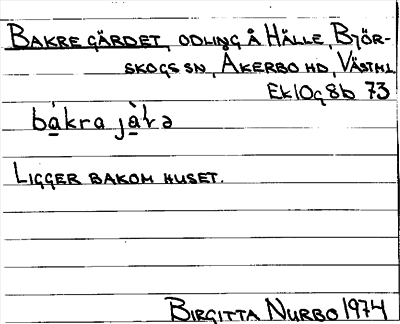 BAKRE GÄRDET, ODLING Å HÄLLE, BJÖR-
SKOGS SN, ÅKERBO HD, VÄSTML
Ek 10g8b 73
bàkra jàɽə
LIGGER BAKOM HUSET.
BIRGITTA NURBO 1974